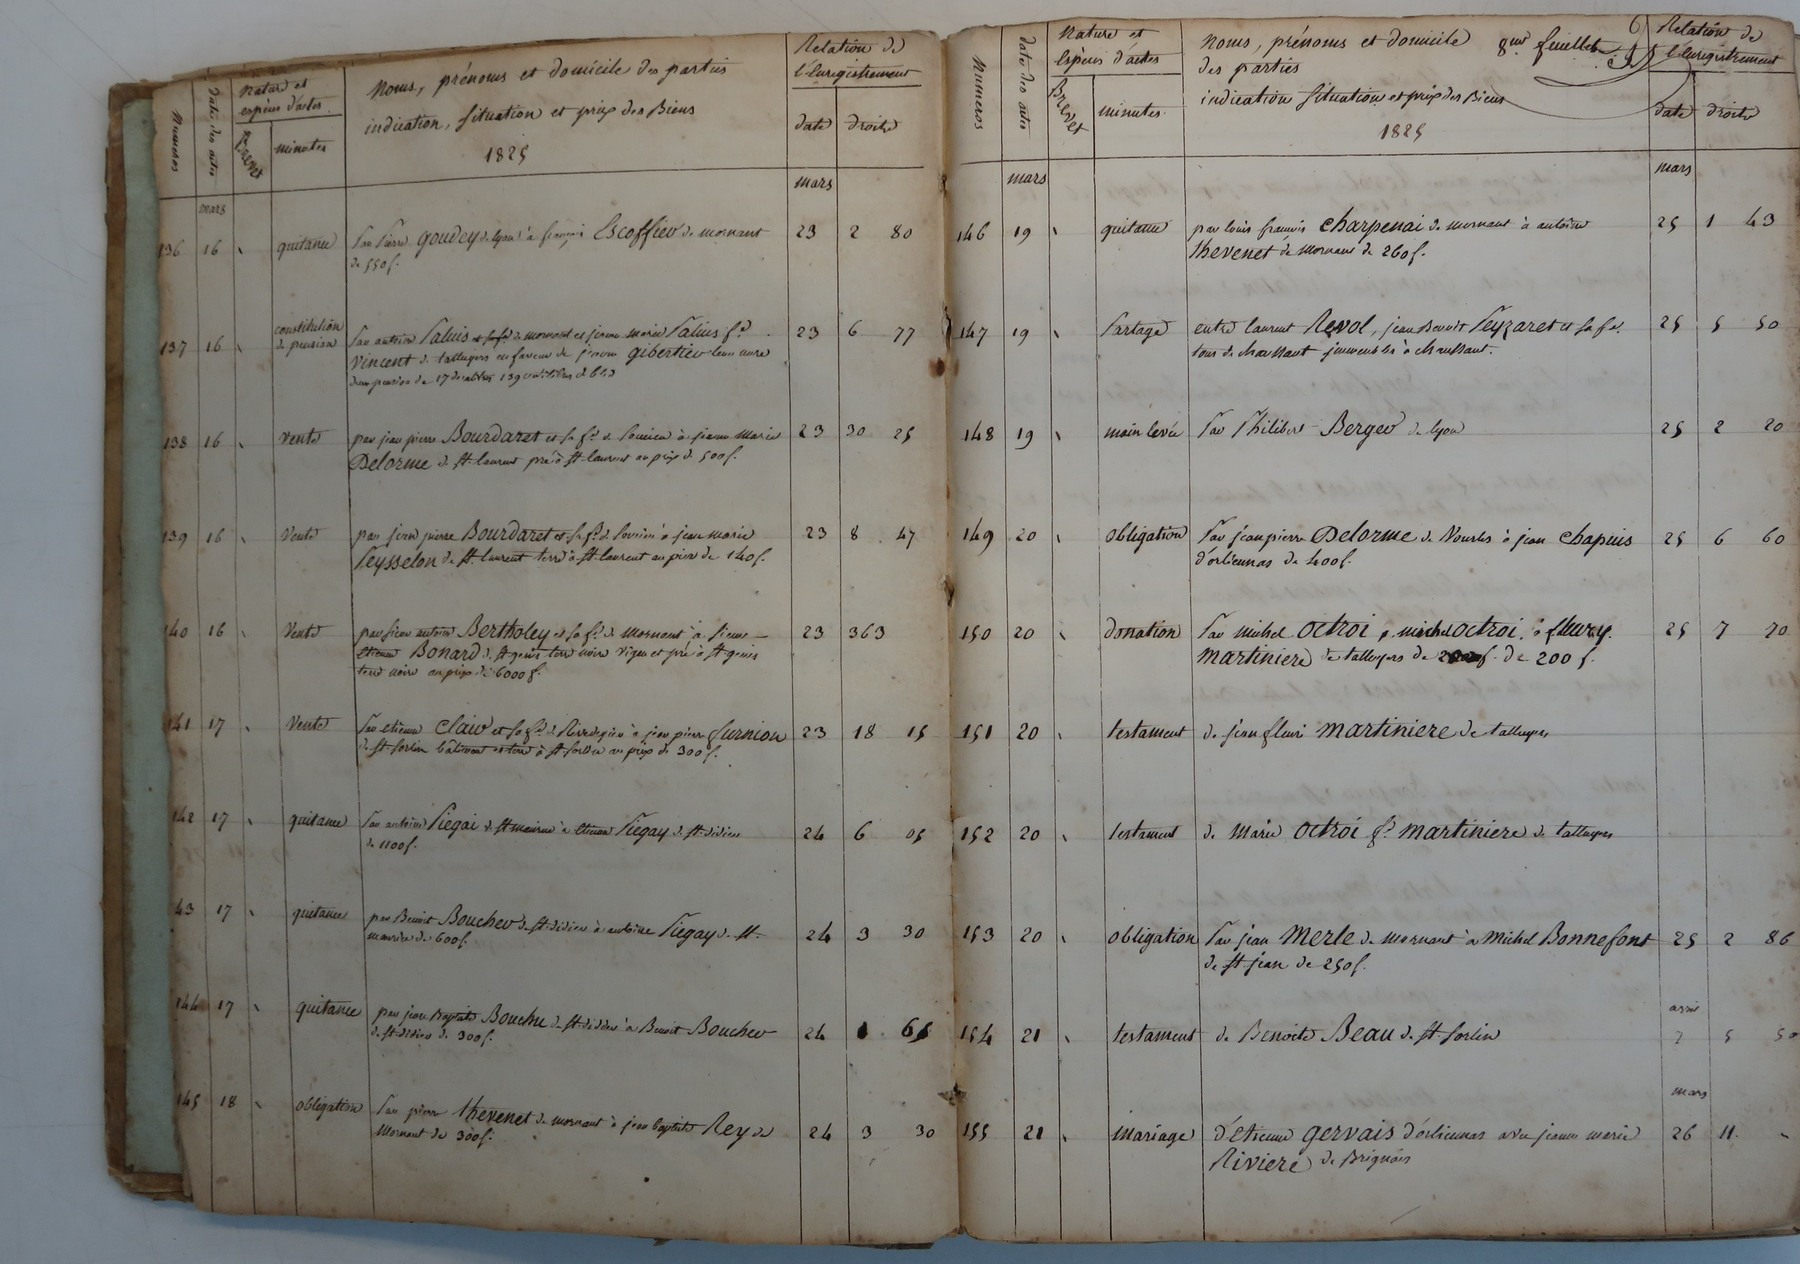 Numeros
date des actes
Nature et
espèce d'actes
Brevet
minutes
Noms, prénoms et domicile des parties
indication, situation et prix des Biens
1825
Relation de
l'Enregistrement
date droits
mars
mars
136 16 quitance par Pierre Goudey de lyon à françois Escoffier de mornant 23 2 80
de 550 f.
137 16 constitution de pension par antoine Paluis et sa fe de mornant et jeanne marie Palius fe 23 6 77
Vincent de talluyers en faveur de jeanne gibertier leur mere
d'une pension de 17 decalitres
138 16 Vente par jean pierre Bourdaret et sa fe de Soucieu à jeanne Marie 23 30 25
Delorme de st. laurent pré à st. laurent au prix de 500 f.
139 16 Vente par jean pierre Bourdaret et sa fe de Soucieu à jean marie 23 8 47
Peysselon de st. laurent terre à st. laurent au prix de 140 f.
140 16 Vente par sieur antoine Bertholey et sa fe de Mornant à sieur 23 363
etienne Bonard de st genis terre noire vigne et pré à st genis
terre noire au prix de 6000 f.
141 17 Vente par etienne Clair et sa fe de Rivedegier à jean pierre furnion 23 18 15
de st sorlin bâtiment et terre à st sorlin au prix de 300 f.
142 17 quitance par antoine Piegai de st maurice à etienne Piegay de st. didier 24 6 05
de 1100 f.
43 17 quitance par Benoit Boucher de st. didier à antoine Piegay de st. 24 3 30
maurice de 600 f.
144 17 quitance par jean Baptiste Bouchu de st didier à Benoit Boucher 24 1 65
de st. didier de 300 f.
145 18 obligation par pierre thevenet de mornant à jean baptiste Rey de 24 3 30
Mornant de 300 f.
Numeros
dates des actes
Nature et
espèces d'actes
Brevet
minutes
Noms, prénoms et domicile 8me feuillet
des parties
indication situation et prix des Biens
1825
Relation de
l'Enregistrement
date droits
mars
mars
146 19 quitance par louis françois Charpenai de mornant à antoine 25 1 43
thevenet de Mornant de 260 f.
147 19 Partage entre laurent Revol, jean Benoit Peyzaret et sa fe. 25 5 50
tous de chaussant immeubles à chaussant.
148 19 main levée par Philibert Berger de lyon 25 2 20
149 20 obligation par jean pierre Delorme de Vourles à jean Chapuis 25 6 60
d'orliennas de 400 f.
150 20 donation par michel octroi michel octroi, à fleury 25 7 70
martiniere de talluyers de 200 f.
151 20 testament de jean fleuri martiniere de talluyers
152 20 testament de Marie octroi fe martiniere de talluyers
153 20 obligation par jean Merle de Mornant à Michel Bonnefont 25 2 86
de st jean de 250 f.
avril
154 21 testament de Benoite Beau de st. sorlin 7 5 50
mars
155 21 Mariage d'étienne gervais d'orliennas avec jeanne marie 26 11
Riviere de Brignais